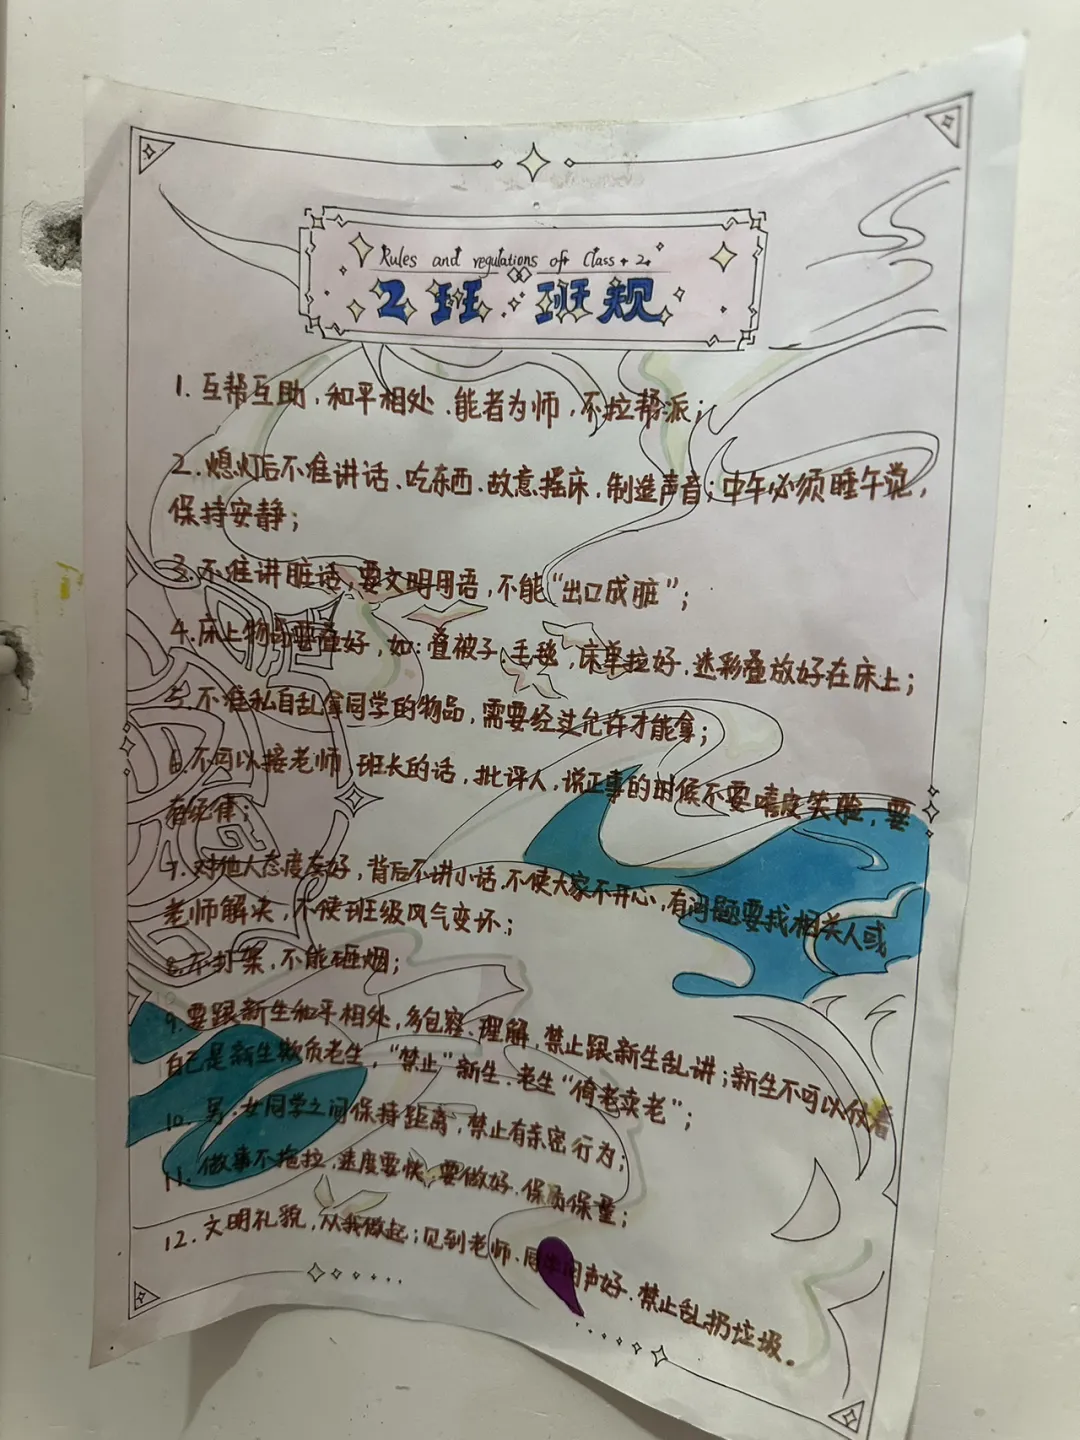 Rules and regulations of Class 2.
2班.班规
1.互帮互助、和平相处、能者为师,不拉帮派;
2.熄灯后不准讲话、吃东西、故意摇床、制造声音;中午必须睡午觉,
保持安静;
3.不准讲脏话,要文明用语,不能“出口成脏”;
4.床上物品要叠好,如:叠被子、毛毯,床单拉好、迷彩叠放好在床上;
5.不准私自乱拿同学的物品,需要经过允许才能拿;
6.不可以接老师、班长的话,批评人,说正事的时候不要嘻皮笑脸,要
有纪律;
7.对他人态度友好,背后不讲小话,不使大家不开心,有问题要找相关人或
老师解决,不使班级风气变坏;
8.不打架,不能砸烟;
9.要跟新生和平相处,多包容、理解,禁止跟新生乱讲;新生不可以仗着
自己是新生欺负老生,“禁止”新生、老生“倚老卖老”;
10.男、女同学之间保持距离,禁止有亲密行为;
11.做事不拖拉,速度要快,要做好、保质保量;
12.文明礼貌,从我做起;见到老师、同学问声好、禁止乱扔垃圾。